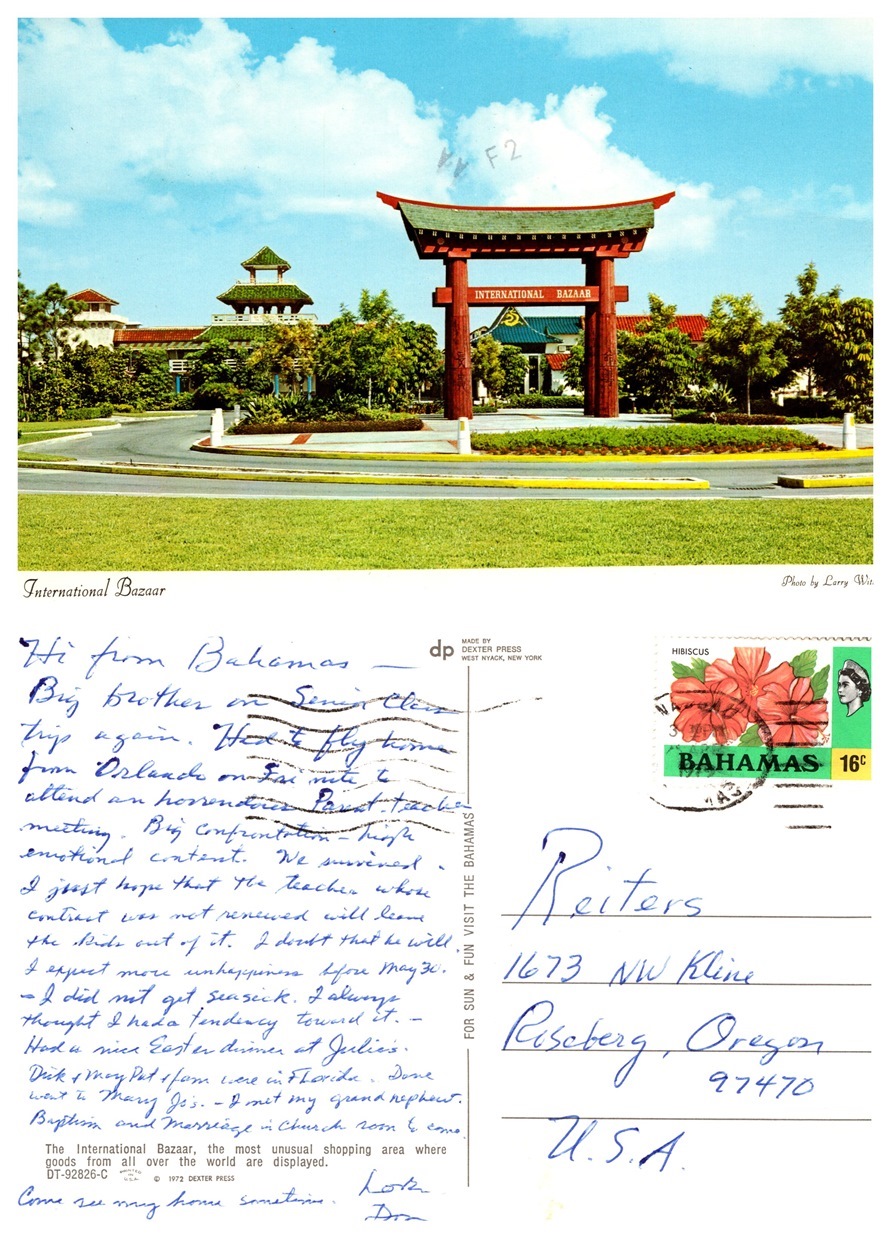 F2
INTERNATIONAL BAZAAR
International Bazaar
Photo by Larry Wit
Hi from Bahamas —
Big brother on Senior Class
trip again. Had to fly home
from Orlando on Fri nite to
attend an horrendous Parent-teacher
meeting. Big confrontation – high
emotional content. We survived.
I just hope that the teacher whose
contract was not renewed will leave
the kids out of it. I doubt that he will.
I expect more unhappiness before May 30.
– I did not get seasick. I always
thought I had a tendency toward it. –
Had a nice Easter dinner at Julie's.
Dick & Mary Pat & fam were in Florida.
went to Mary Jo's. – I met my grand nephew.
Baptism and Marriage in Church soon to come.
The International Bazaar, the most unusual shopping area where
goods from all over the world are displayed.
DT-92826-C PRINTED IN U.S.A. © 1972 DEXTER PRESS
Come see my home sometime.
Don
dp
MADE BY
DEXTER PRESS
WEST NYACK, NEW YORK
FOR SUN & FUN VISIT THE BAHAMAS
HIBISCUS
BAHAMAS 16c
Reiters
1673 NW Kline
Roseberg, Oregon
97470
U.S.A.